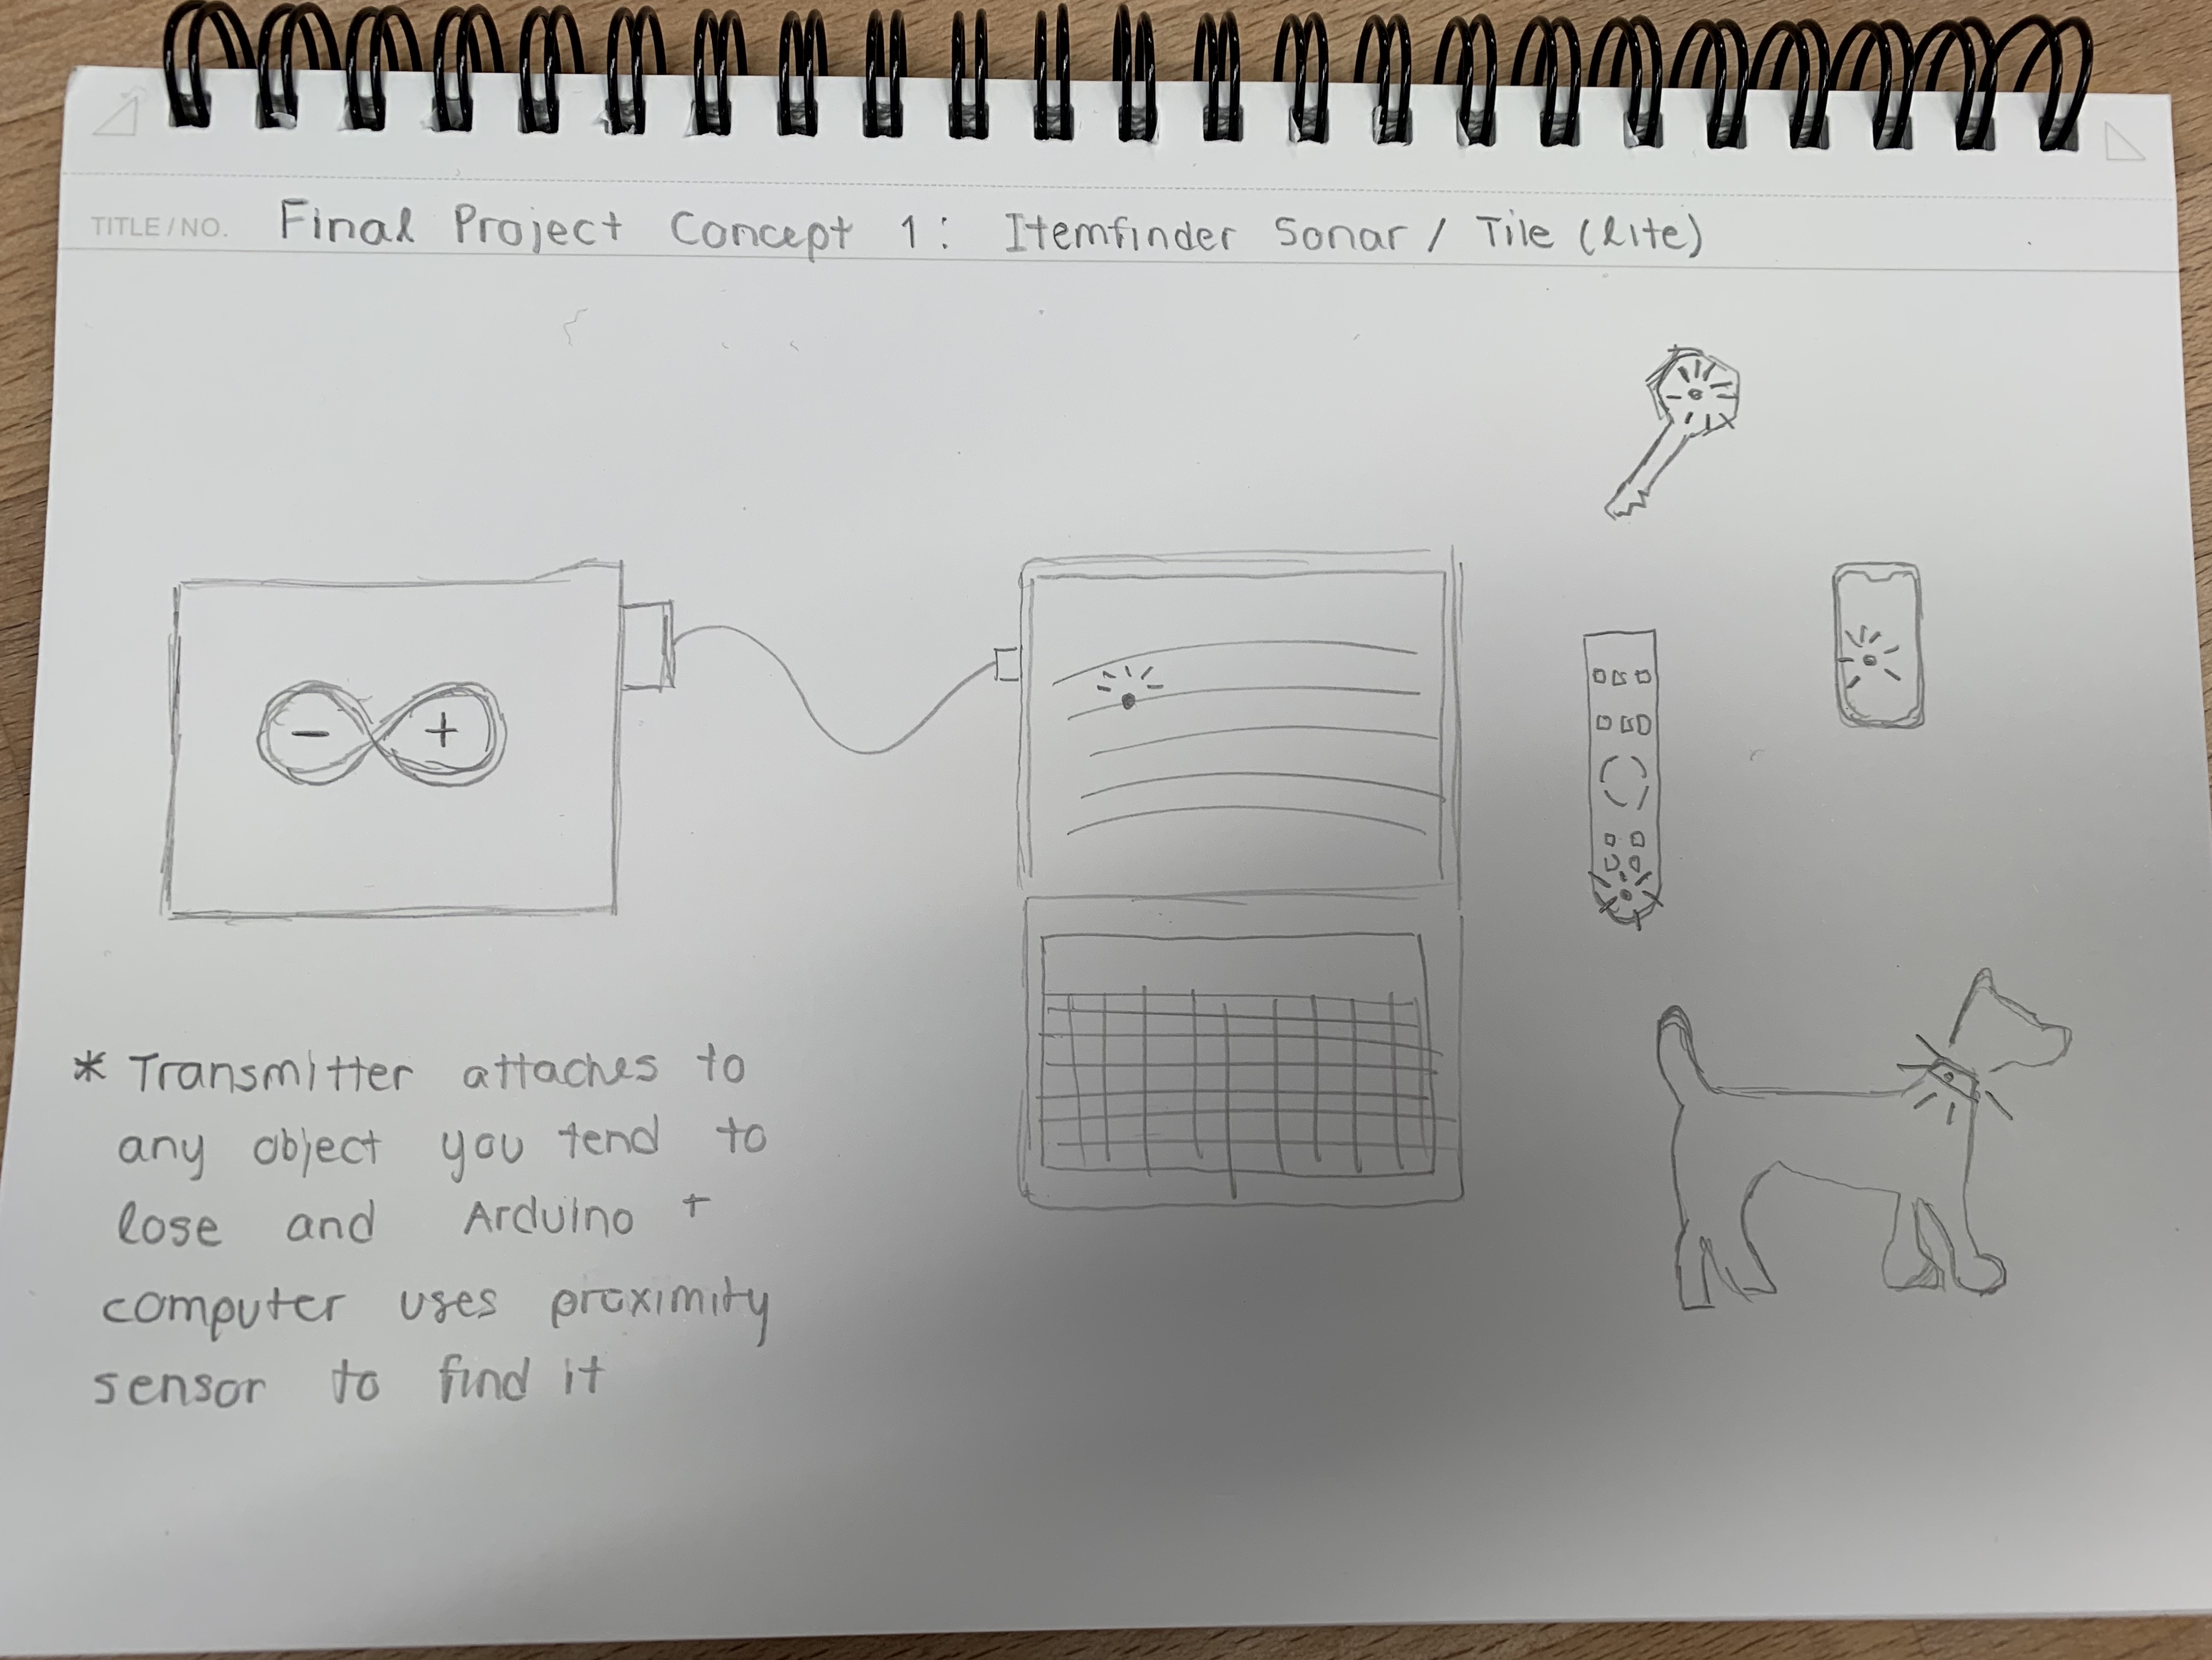 TITLE/NO. Final Project Concept 1: Itemfinder Sonar / Tile (lite)
- +
* Transmitter attaches to
any object you tend to
lose and Arduino +
computer uses proximity
sensor to find it